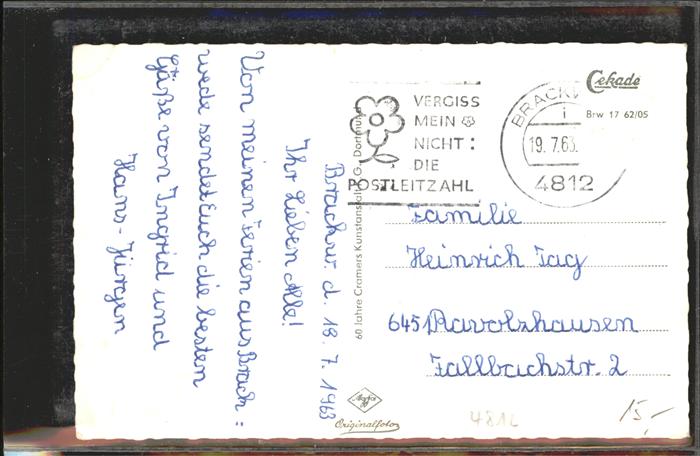 Brackw. d. 18. 7. 1963
Ihr Lieben Alle!
Von meinen Ferien aus Brack:
wede sendet Euch die besten
Grüße von Ingrid und
Hans-Jürgen
60 Jahre Cramers Kunstanstalt KG, Dortmund
VERGISS
MEIN
NICHT:
DIE
POSTLEITZAHL
BRACKW
i
19.7.63.
4812
Cekade
Brw 17 62/05
Familie
Heinrich Tag
6451 Ravolzhausen
Fallbachstr. 2
Agfa
Originalfoto
4812
15,-